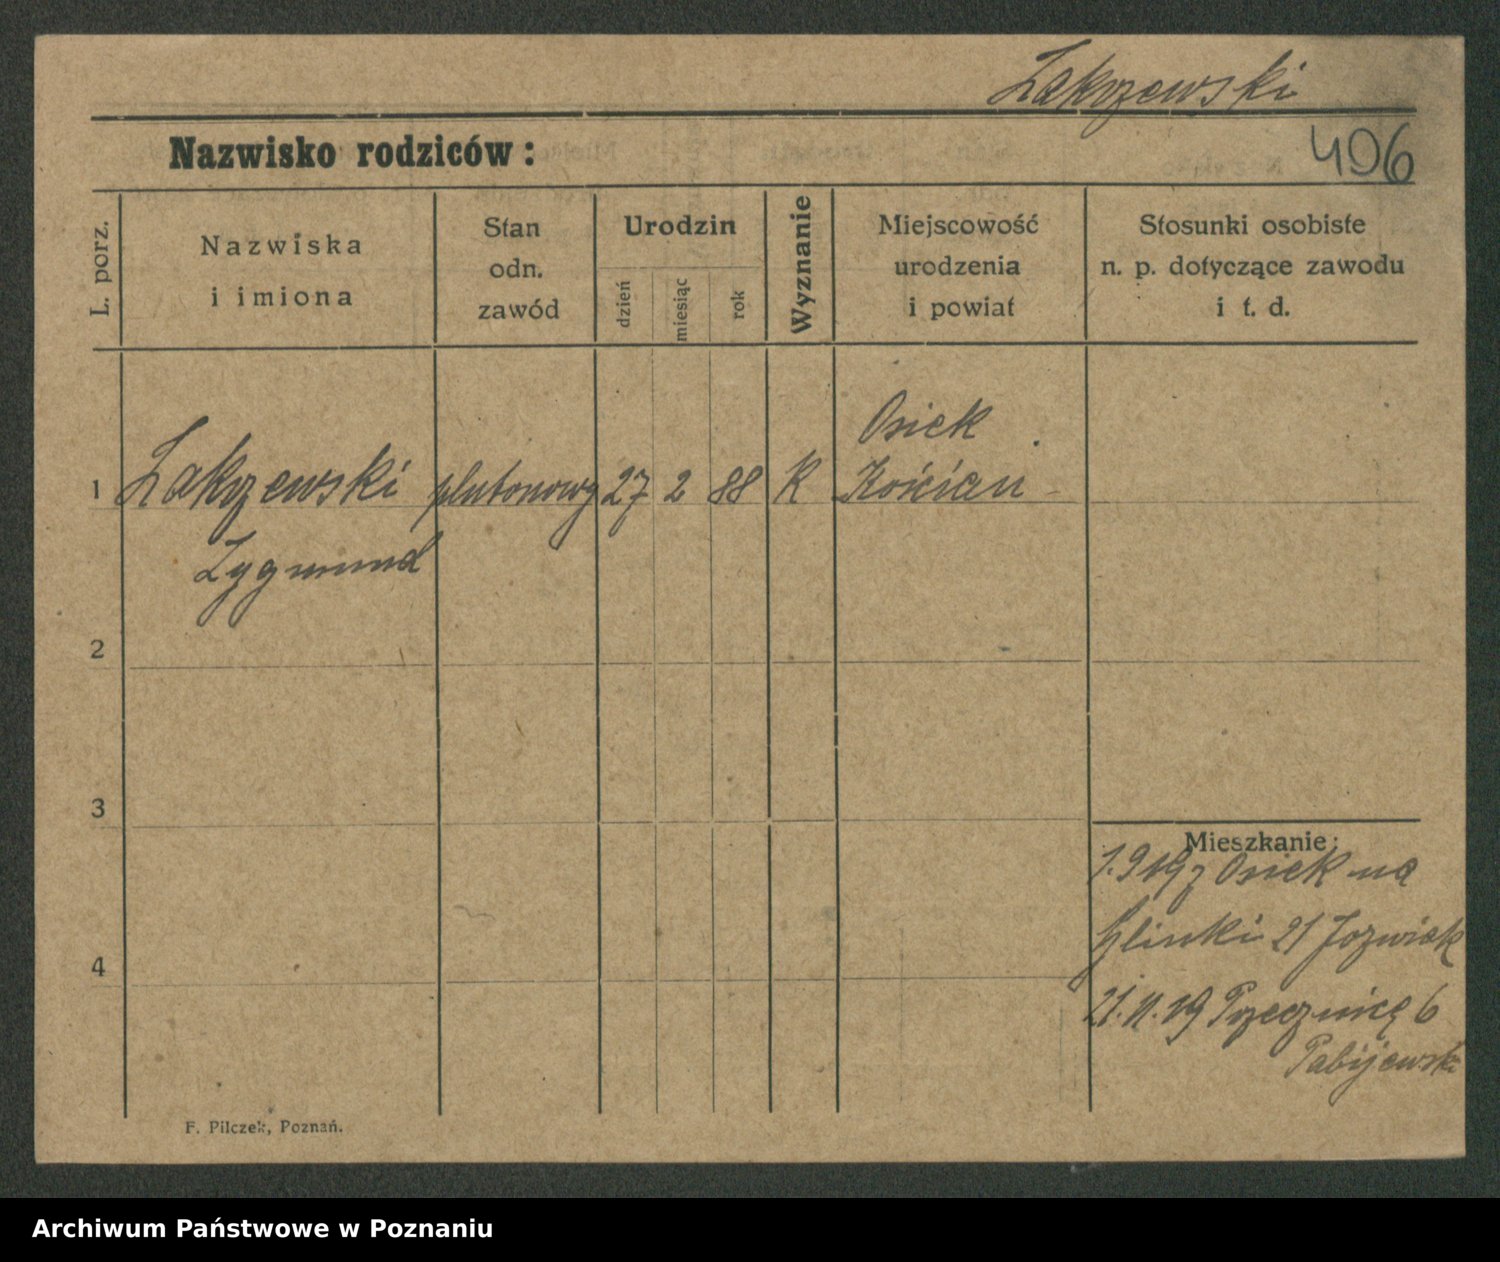 Zakrzewski
Nazwisko rodziców:
496
L. porz.
Nazwiska
i imiona
Stan
odn.
zawód
Urodzin
dzień
miesiąc
rok
Wyznanie
Miejscowość
urodzenia
i powiat
Stosunki osobiste
n. p. dotyczące zawodu
i t. d.
Osiek
1 Zakrzewski plutonowy 27 2 88 K Kościan
Zygmund
2
3
Mieszkanie:
Osiek na
Glinki 21 Jozwiak
4
21.11.19 Przecznica 6
Pabijewski
F. Pilczek, Poznań.
Archiwum Państwowe w Poznaniu